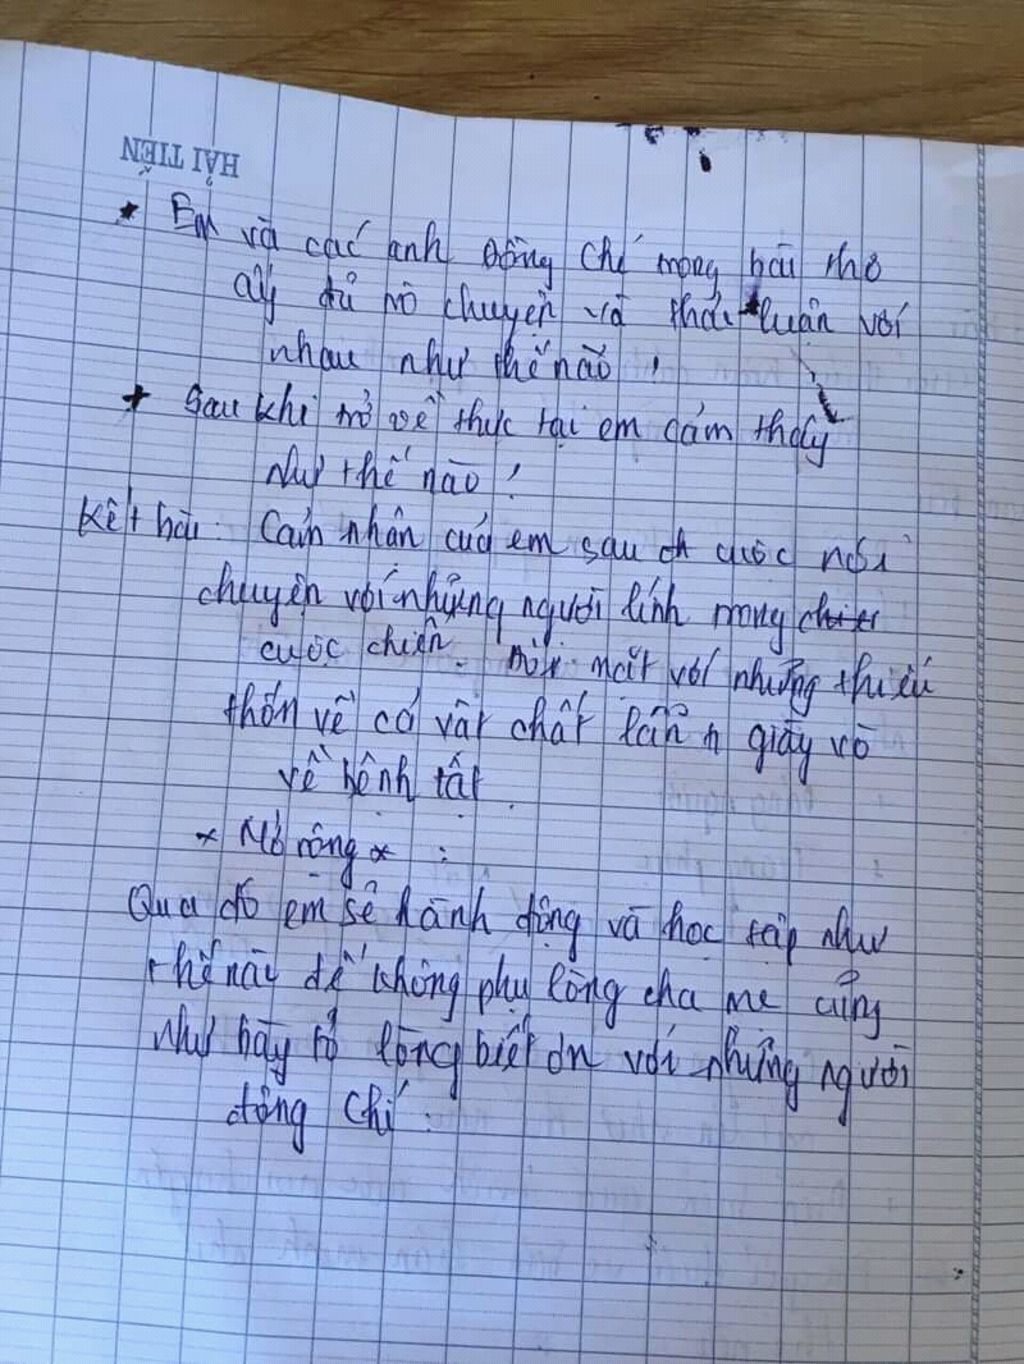 HẢI TIẾN
* Em và các anh đồng chí trong bài thơ
ấy đã trò chuyện và thảo luận với
nhau như thế nào !
+ Sau khi trở về thực tại em cảm thấy
như thế nào !
Kết bài : Cảm nhận của em sau cuộc nói
chuyện với những người lính trong
cuộc chiến. Đối mặt với những thiếu
thốn về cả vật chất lẫn giày vò
về bệnh tật.
* Mở rộng * :
Qua đó em sẽ hành động và học tập như
thế nào để không phụ lòng cha mẹ cũng
như bày tỏ lòng biết ơn với những người
đồng chí .